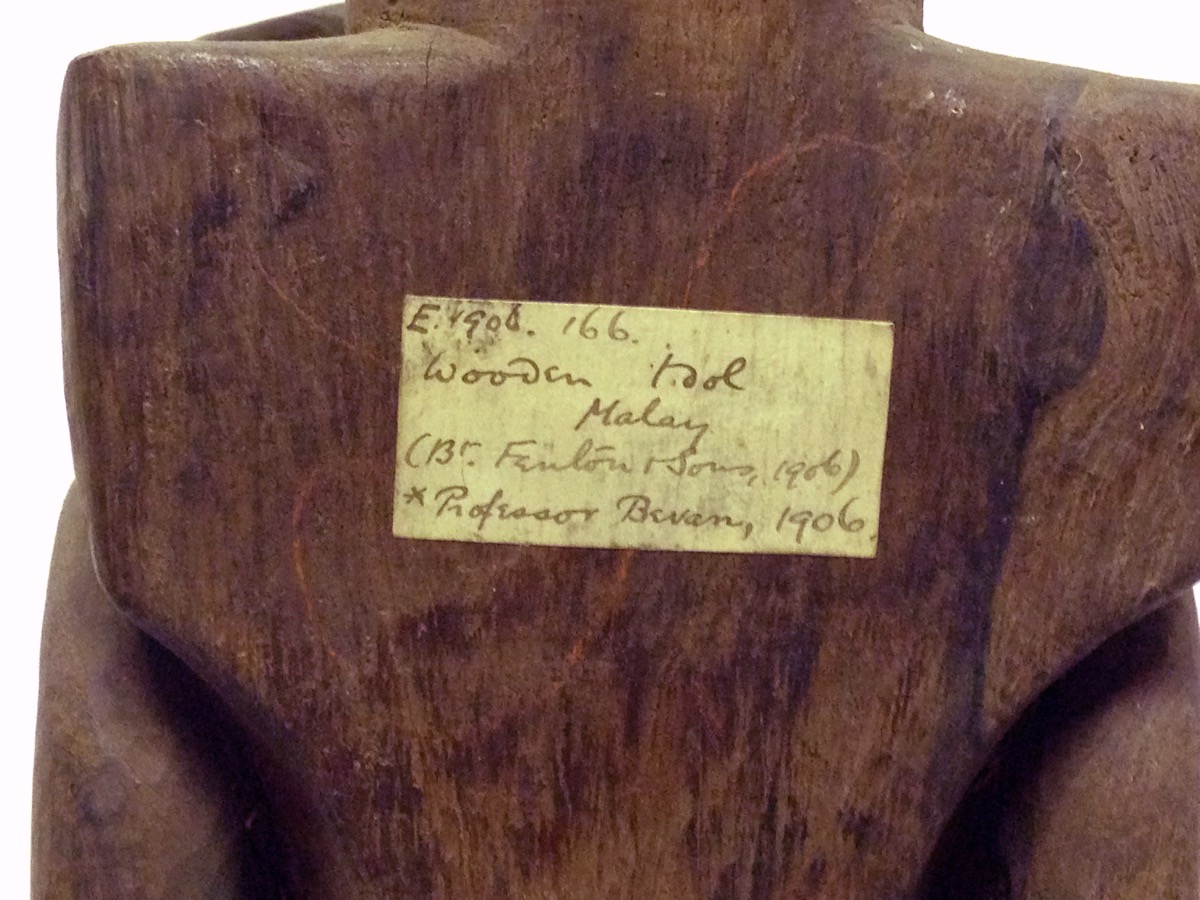 E. 1906. 166.
Wooden Idol
Malay
(Bt. Fenton & Sons, 1906)
* Professor Bevan, 1906.